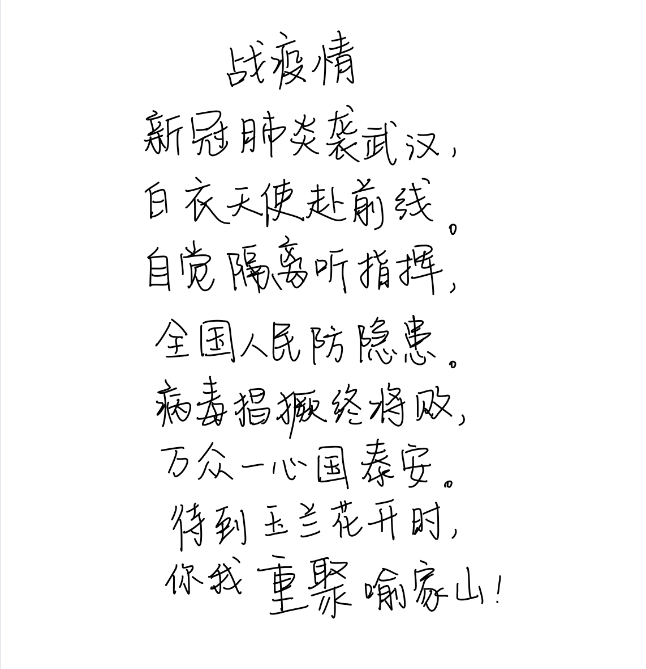 战疫情
新冠肺炎袭武汉，
白衣天使赴前线。
自觉隔离听指挥，
全国人民防隐患。
病毒猖撅终将败，
万众一心国泰安。
待到玉兰花开时，
你我重聚喻家山！